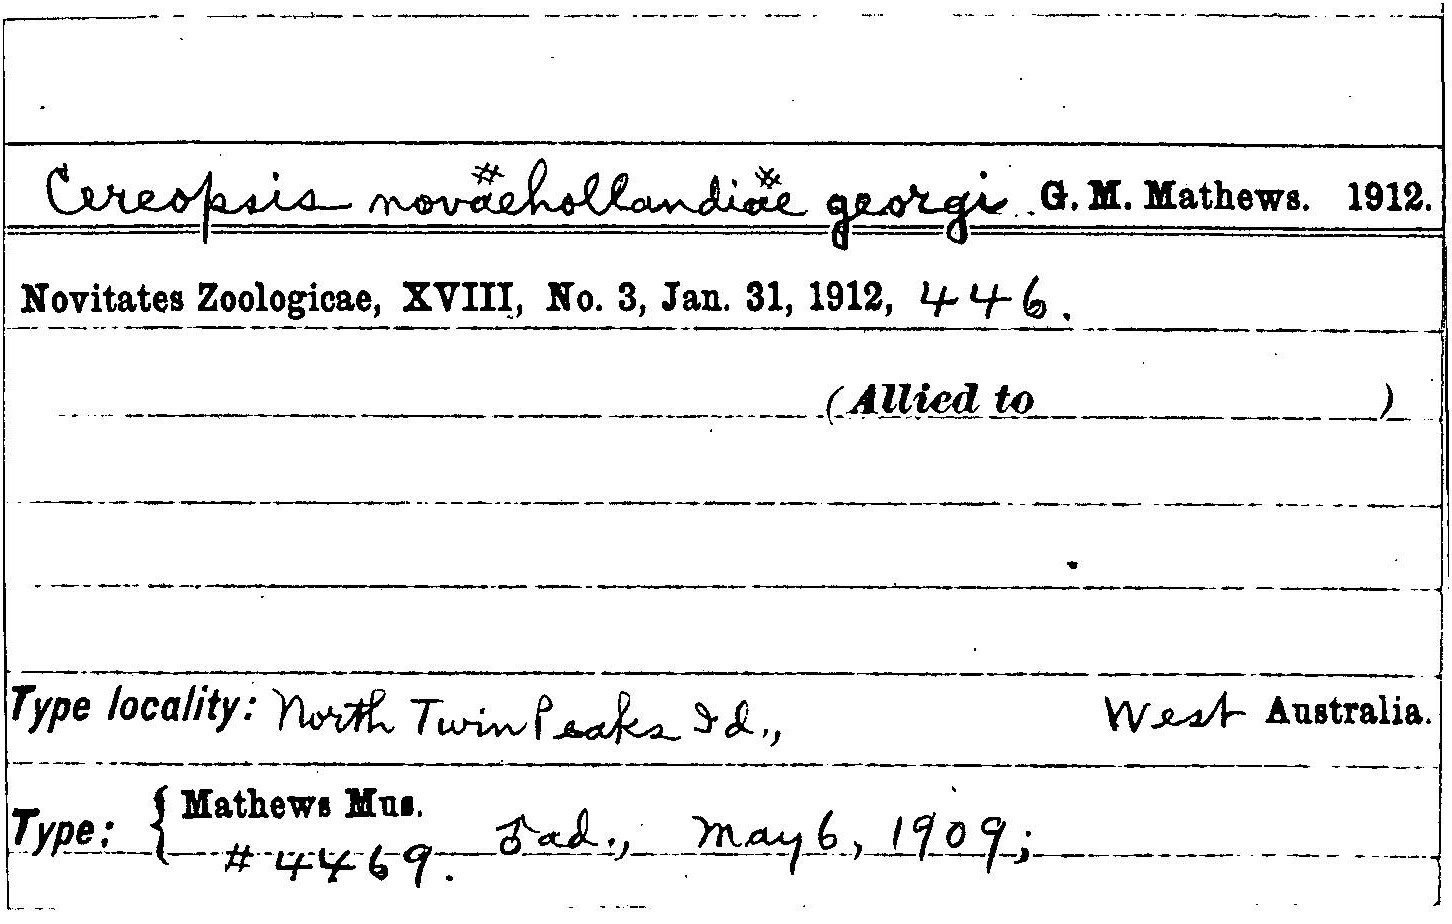 Cereopsis novaehollandiae georgi G. M. Mathews. 1912.
Novitates Zoologicae, XVIII, No. 3, Jan. 31, 1912, 446.
(Allied to )
Type locality: North Twin Peaks Id., West Australia.
Type: { Mathews Mus. # 4469. ♂ ad., May 6, 1909;